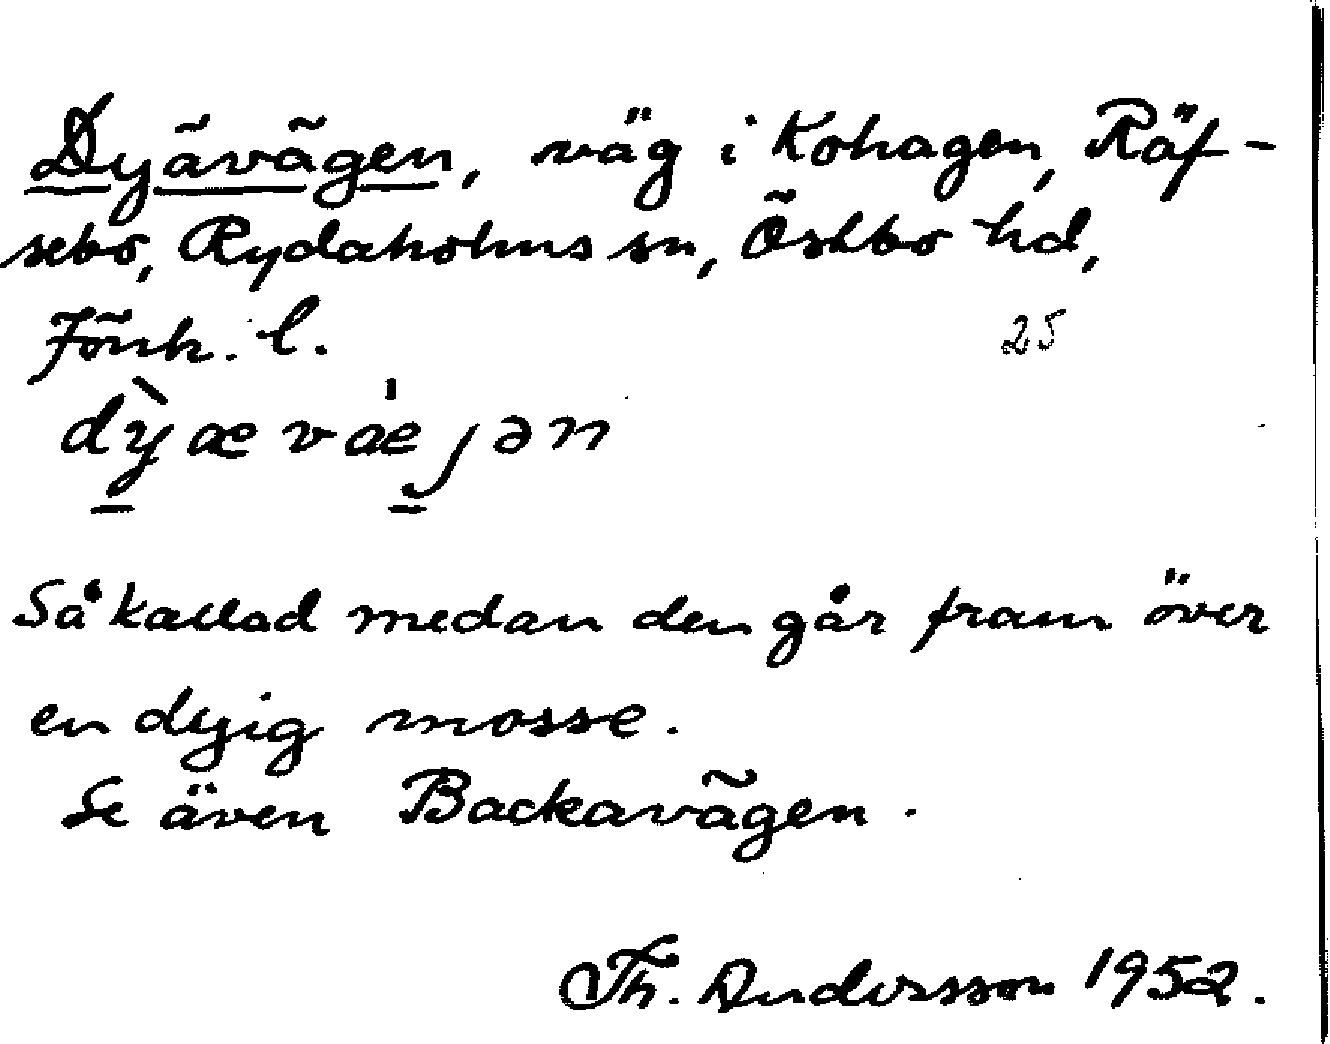 Dyävägen, väg i Kohagen, Räf-
sebo, Rydaholms sn, Östbo hd,
Jönk. l.
25
dỳævæ̀jən
Så kallad medan den går fram över
en dyig mosse.
Se även Backavägen.
Th. Andersson 1952.